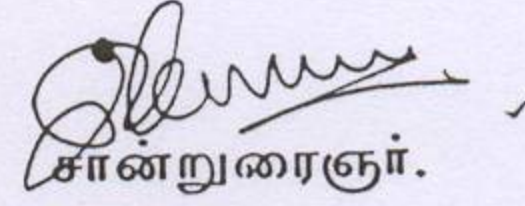 சான்றுரைஞர்.